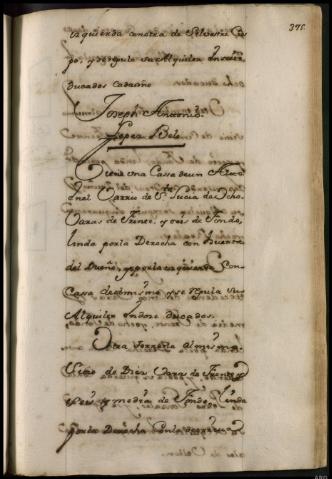 375.
izquierda con otra de Silvestre Cres
po, y se regula su Alquiler en siete
Ducados cada año
Joseph Antonio
Lopez Belo
Tiene una Cassa de un Alto
en el Varrio de Sta Lucia de Ocho
Varas de frente, y seis de fondo,
linda por la Derecha con huerta
del Dueño, y por la izquierda con
Cassa de el mismo y se regula su
Alquiler en doze ducados.
Otra terrera al mismo
Sitio de Diez Varas de frente y
seis y media de fondo, Linda
por la Derecha con la de